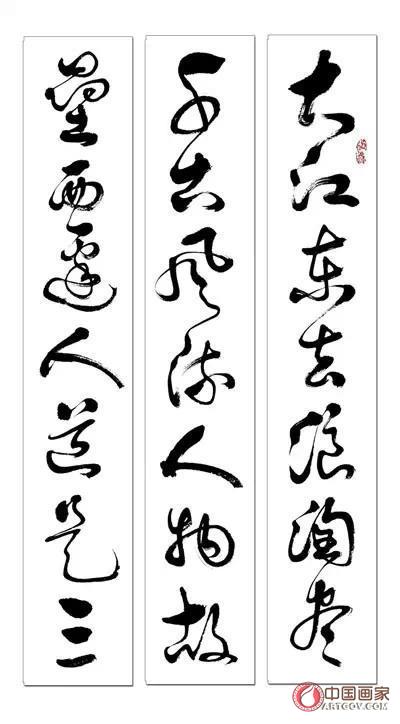 大江東去浪淘盡
千古風流人物故
壘西邊人道是三
中国画家
ARTGOV.COM